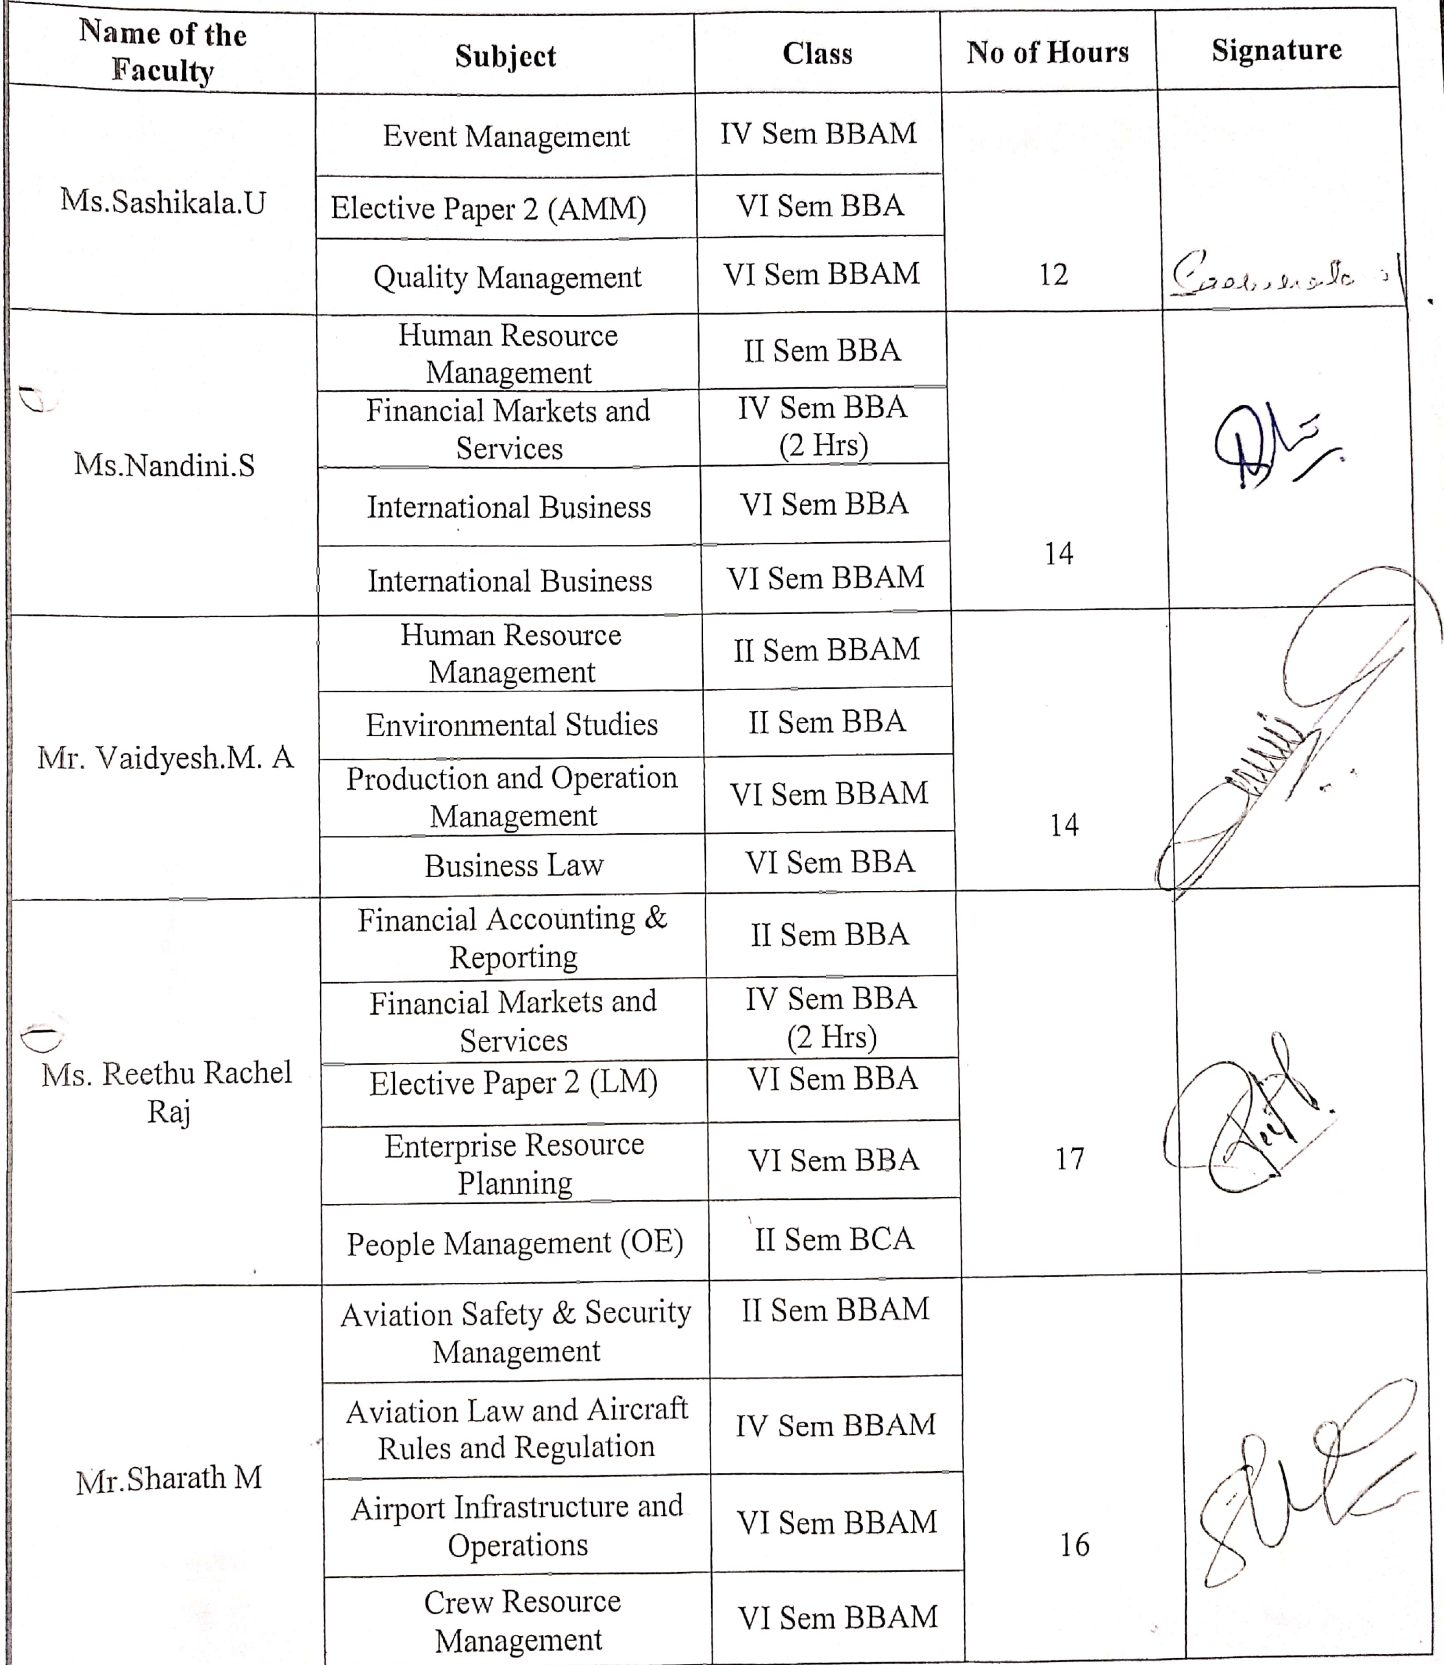 Name of the
Faculty
Subject
Class
No of Hours
Signature
Ms.Sashikala.U
Event Management
IV Sem BBAM
Elective Paper 2 (AMM)
VI Sem BBA
Quality Management
VI Sem BBAM
12
Ms.Nandini.S
Human Resource
Management
II Sem BBA
Financial Markets and
Services
IV Sem BBA
(2 Hrs)
International Business
VI Sem BBA
International Business
VI Sem BBAM
14
Mr. Vaidyesh.M. A
Human Resource
Management
II Sem BBAM
Environmental Studies
II Sem BBA
Production and Operation
Management
VI Sem BBAM
Business Law
VI Sem BBA
14
Ms. Reethu Rachel
Raj
Financial Accounting &
Reporting
II Sem BBA
Financial Markets and
Services
IV Sem BBA
(2 Hrs)
Elective Paper 2 (LM)
VI Sem BBA
Enterprise Resource
Planning
VI Sem BBA
People Management (OE)
II Sem BCA
17
Mr.Sharath M
Aviation Safety & Security
Management
II Sem BBAM
Aviation Law and Aircraft
Rules and Regulation
IV Sem BBAM
Airport Infrastructure and
Operations
VI Sem BBAM
Crew Resource
Management
VI Sem BBAM
16